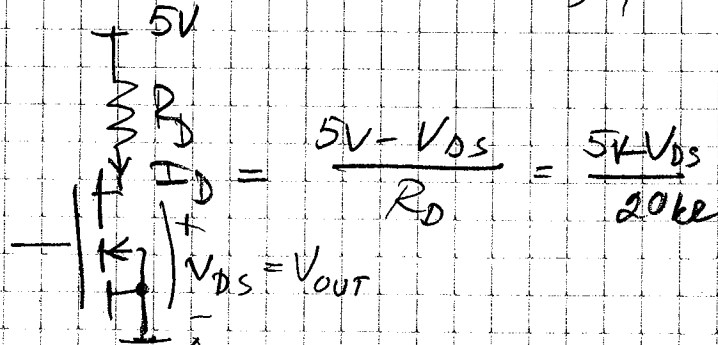 5V
R_D
I_D = 5V - V_DS / R_D = 5V - V_DS / 20k
+
V_DS = V_OUT
-